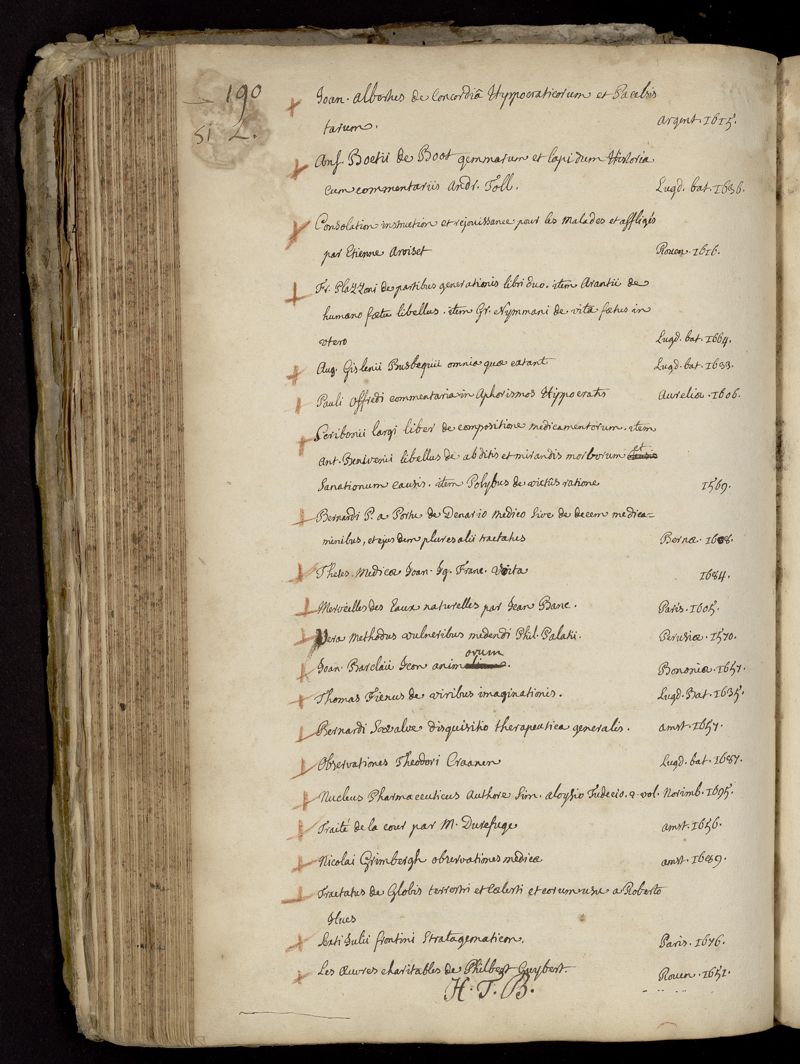 190
51 L.
Joan. Albertus de Concordiâ Hyppocraticorum et Pacelsis
tarum. Argent. 1615.
Ans. Boetii de Boot gemmarum et lapidum Historia
cum commentariis Andr. Toll. Lugd. bat. 1636.
Consolation instruction et rejouissance pour les Malades et affligés
par Etienne Aroiset Rouen. 1616.
Fr. Plazzoni de partibus generationis libri duo. item Arantii de
humano fœtu libellus. item Gr. Nymmani de vitâ fœtus in
utero Lugd. bat. 1664.
Aug. Gislenii Busbequii omnia quæ extant Lugd. bat. 1633.
Pauli Offredi commentaria in Aphorismos Hyppocratis Aureliæ. 1606.
Scribonii largi liber de compositione medicamentorum. item
Ant. Benivenii libellus de abditis et mirandis morborum et
Sanationum causis. item Polybus de victûs ratione 1569.
Bernardi P. a Portu de Denario Medico Sive de decem medica-
minibus, et ejusdem plures alii tractatus Bernæ. 1608.
Theses Medicæ Joan. Ig. Franc. Voita 1684.
Merveilles des Eaux naturelles par Jean Banc. Paris. 1605.
Vera Methodus vulneribus medendi Phil. Palatii. Perusiæ. 1570.
Joan. Barclaii Icon animorum. Bononiæ. 1657.
Thomas Fienus de viribus imaginationis. Lugd. Bat. 1635.
Bernardi Swalve disquisitio therapeutica generalis. amst. 1657.
Observationes Theodori Craanen Lugd. bat. 1687.
Nucleus Pharmaceuticus Authore Sim. aloysio Tudecio. 2. vol. Norimb. 1695.
Traité de la cour par M. Durefuge amst. 1656.
Nicolai Grimbergh observationes medicæ amst. 1689.
Tractatus de Globis terrestri et Cœlesti et eorum usu a Roberto
Hues
Sexti Julii frontini Stratagematicon. Paris. 1676.
Les œuvres charitables de Philbert Guybert. Rouen. 1651.
H. T. B.